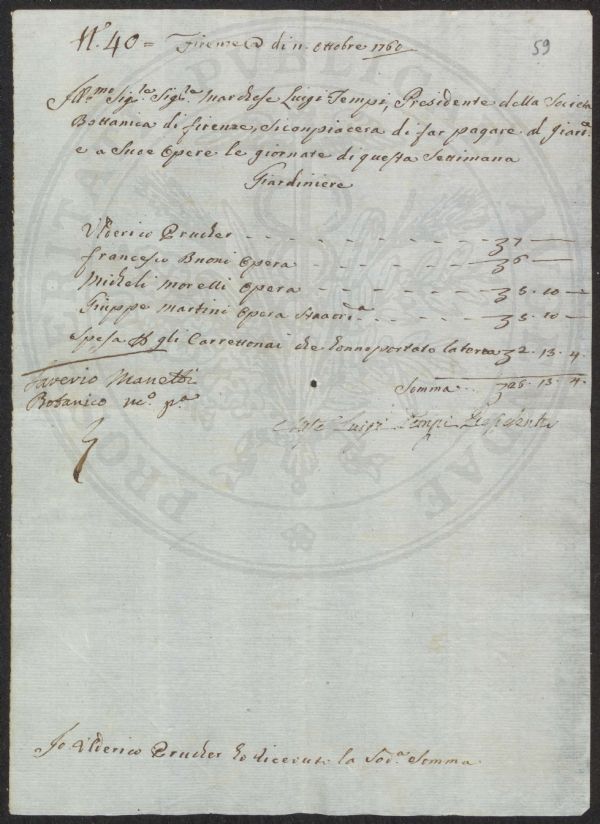 N.º 40 = Firenze @ di 11 Ottobre 1760
59
Ill.mo Sig.le Sig.le Marchese Luigi Tempi, Presidente della Societa
Bottanica di firenze, si conpiacera di far pagare al Giar.e
e a Sue Opere le giornate di questa Settimana
Giardiniere
Ulderico Prucher - - - - - - - - 7 —
francesco Buoni Opera - - - - - - 6 —
Micheli Morelli Opera - - - - - - 5 . 10 —
Giuppe Martini Opera - - - 5 . 10 —
Spesa gli Carrettonai che honno portato la terra 2 . 13 . 4
Saverio Manetti
Botanico m.o p.a
Somma . . . 26 . 13 . 4
Luigi Tempi Presidente
Io Ulderico Prucher ho riceuto la Sod.a Somma